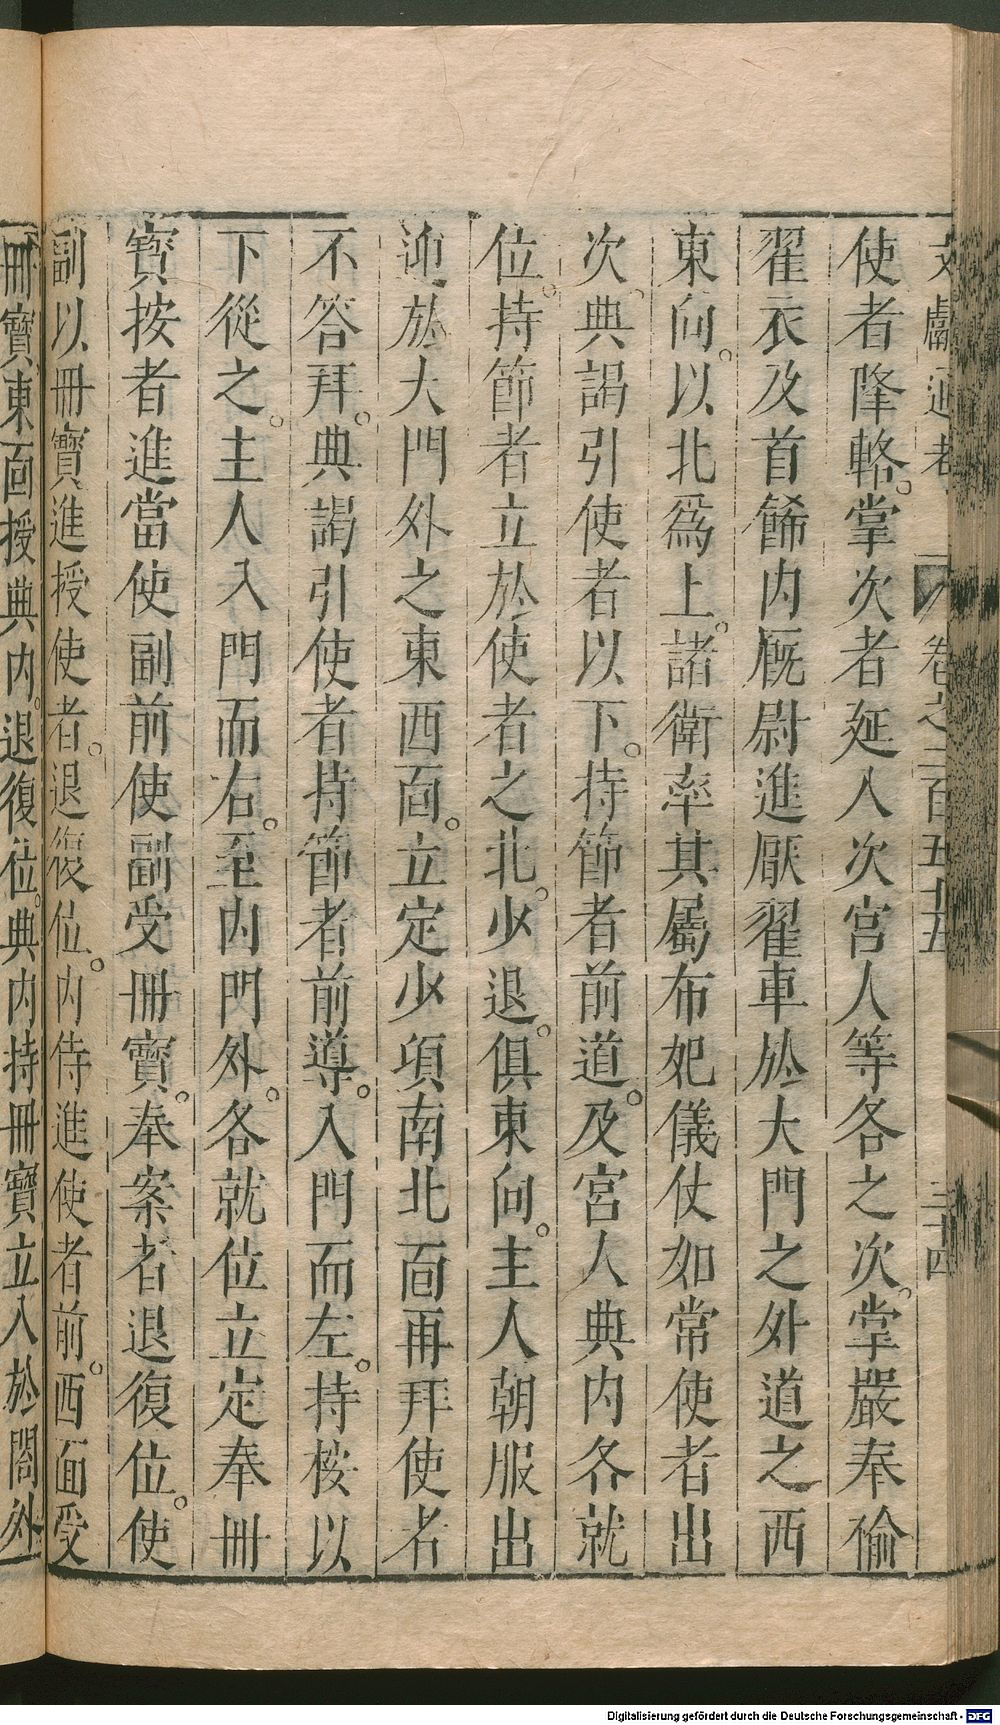 文獻通考 卷之二百五十五 三十四
使者降輅。掌次者延入次宮人等各之次。掌嚴奉褕
翟衣及首餙内厩尉進厭翟車於大門之外道之西
東向。以北爲上。諸衛率其屬布妃儀仗如常使者出
次。典謁引使者以下。持節者前道。及宮人典内各就
位。持節者立於使者之北。少退。俱東向。主人朝服出
迎於大門外之東西面。立定少頃南北面再拜使者
不答拜。典謁引使者持節者前導。入門而左。持桉以
下從之。主人入門而右。至内門外。各就位立定奉冊
寳按者進當使副前使副受冊寳。奉案者退復位。使
副以冊寳進授使者。退復位。内侍進使者前。西面受
冊寳東面授典内。退復位。典内持冊寳立入於閤外
Digitalisierung gefördert durch die Deutsche Forschungsgemeinschaft - DFG